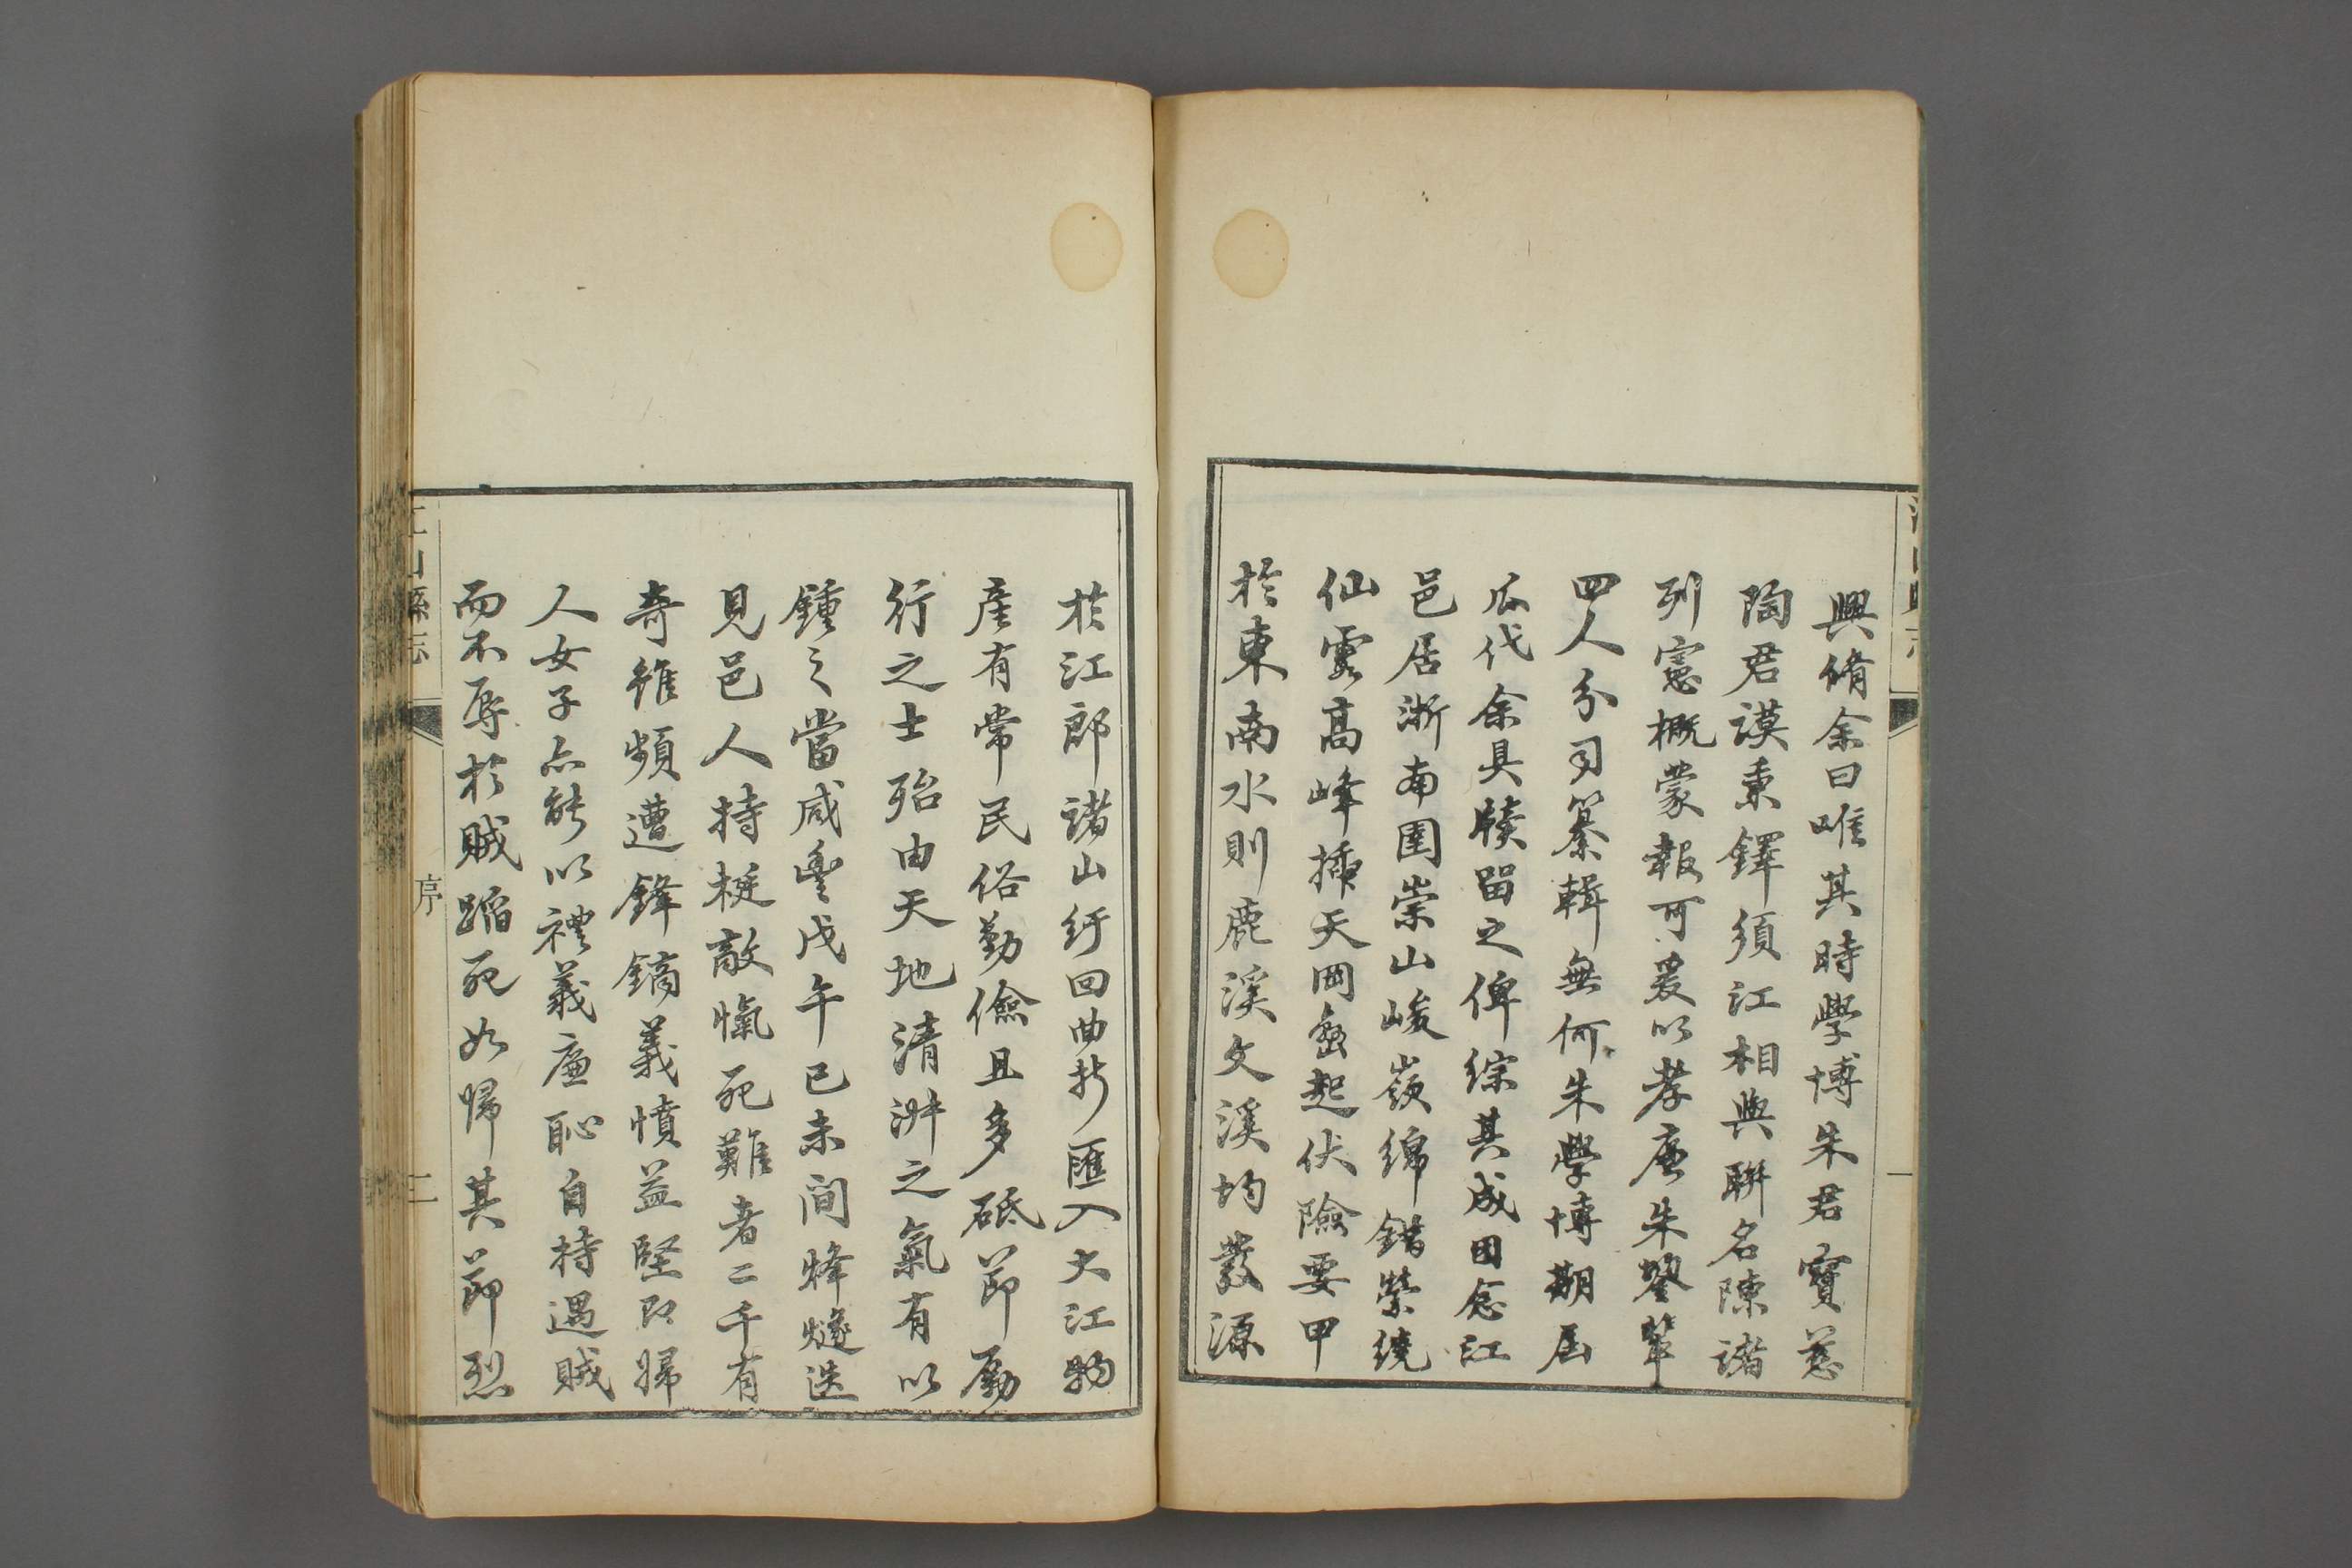 興脩余曰唯其時學博朱君寶慈
陶君謨秉鐸須江相與聯名陳諸
列憲概蒙報可爰以孝廉朱鑾輩
四人分司纂輯無何朱學博期屆
瓜代余具牘留之俾綜其成因念江
邑居浙南圉崇山峻嶺綿錯縈繞
仙霞高峰插天岡巒起伏險要甲
於東南水則鹿溪文溪均發源
於江郎諸山紆回曲折匯入大江物
產有常民俗勤儉且多砥節勵
行之士殆由天地清淑之氣有以
鍾之當咸豐戊午己未間烽燧迭
見邑人持梃敵愾死難者二千有
奇雖頻遭鋒鏑義憤益堅即婦
人女子亦能以禮義廉恥自持遇賊
而不辱於賊蹈死如歸其節烈
江山縣志
序
二